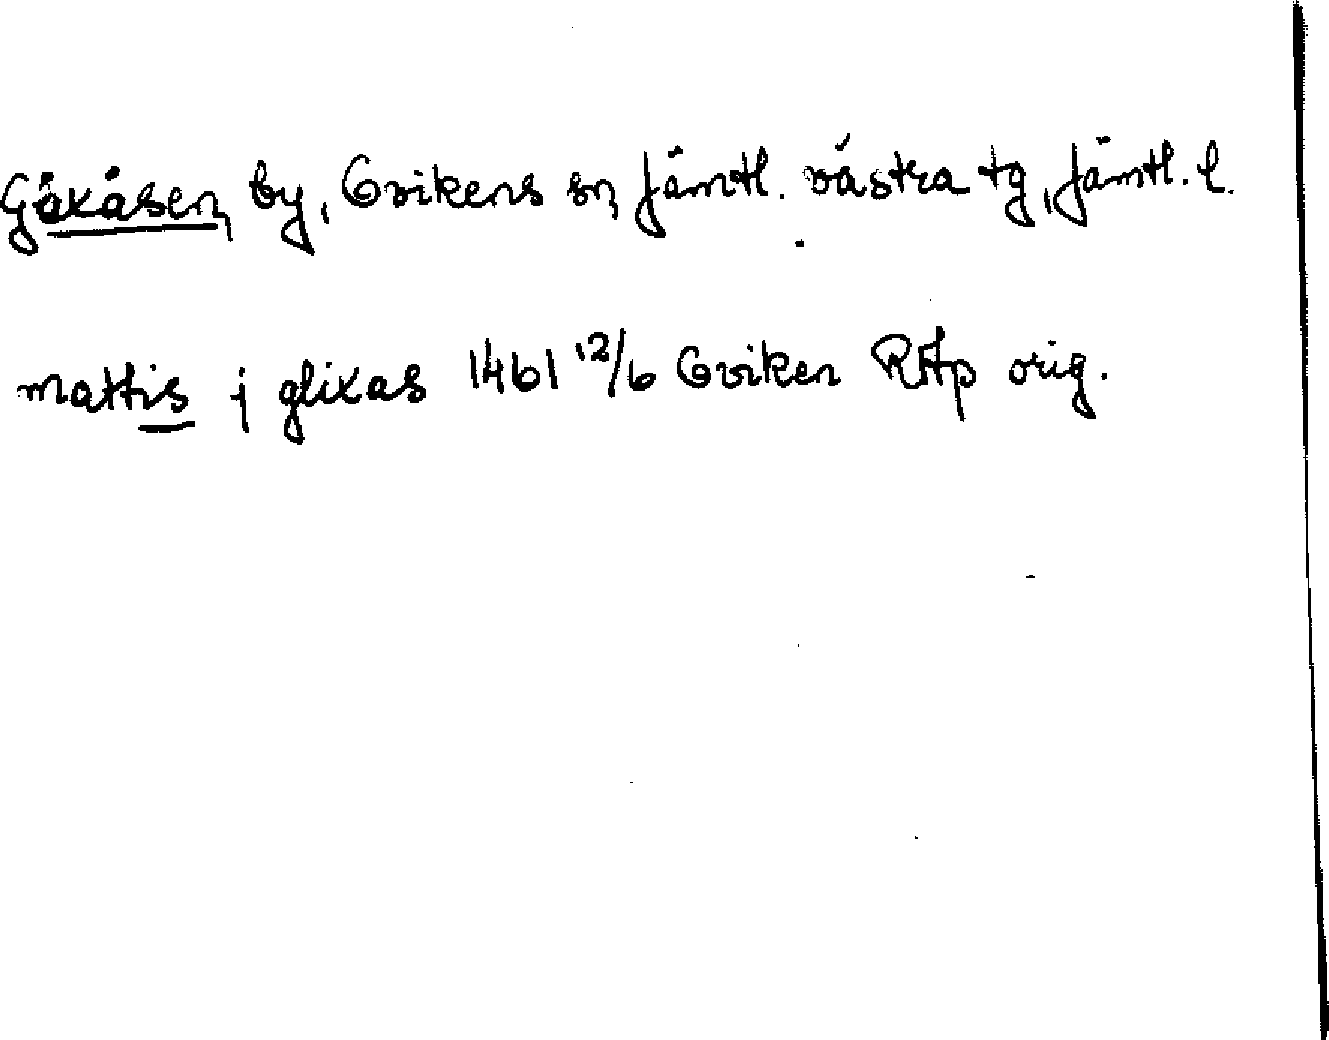 Gåxåsen, by, Ovikens sn, Jämtl. västra tg, Jämtl. l.
mattis j glixas 1461 12/6 Oviken RAp orig.